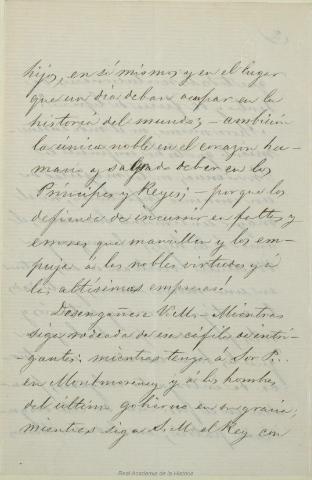 hijos, en sí mismos y en el lugar
que un día deban ocupar en la
historia del mundo; - ambición
la única noble en el corazon hu-
mano y sagrado deber en los
Príncipes y Reyes; - porque los
defienda de incurrir en faltas y
errores que mancillan y los em-
puja á las nobles virtudes y á
las altísimas empresas!
Desengáñese V.M. - Mientras
siga rodeada de esa cáfila de intri-
gantes; mientras tenga á Sor P...
en Montmorency y á los hombres
del último gobierno en su gracia;
mientras siga S.M. el Rey con
Real Academia de la Historia